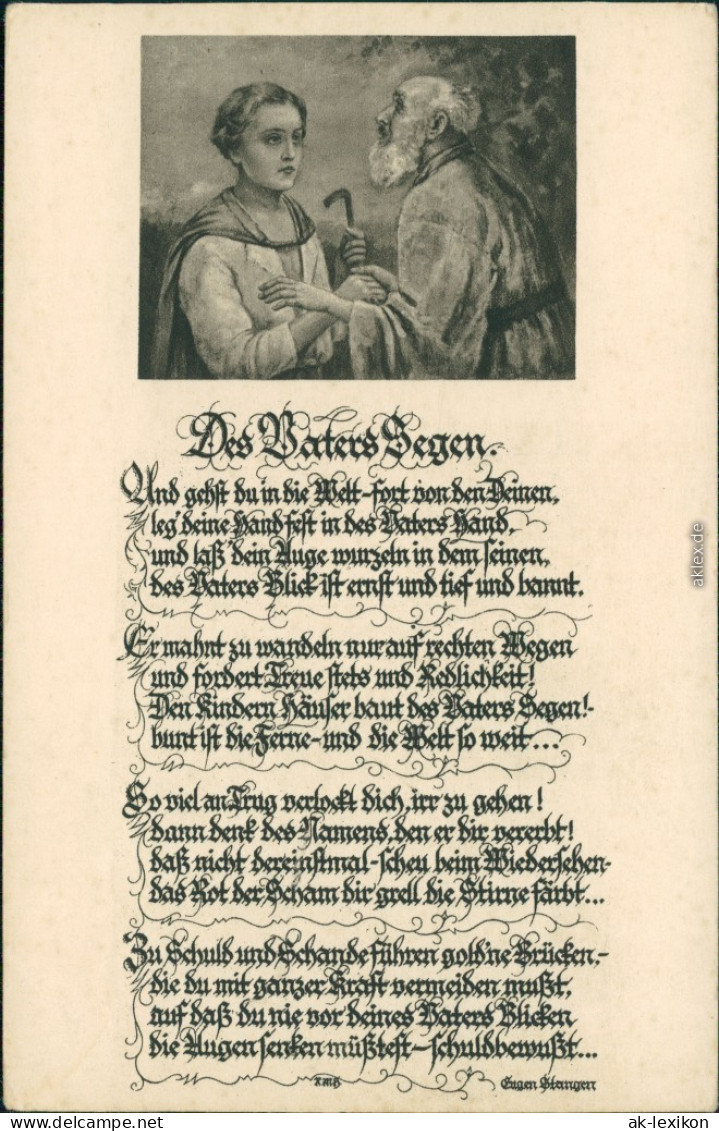 Des Vaters Segen.
Und gehst du in die Welt – fort von den Deinen,
leg' deine Hand fest in des Vaters Hand,
und laß dein Auge wurzeln in dem seinen,
des Vaters Blick ist ernst und tief und bannt.
Er mahnt zu wandeln nur auf rechten Wegen
und fordert Treue stets und Redlichkeit!
Den Kindern Häuser baut des Vaters Segen! –
bunt ist die Ferne – und die Welt so weit...
So viel an Trug verlockt dich, irr zu gehen!
dann denk des Namens, den er dir vererbt!
daß nicht dereinstmal – scheu beim Wiedersehen –
das Rot der Scham dir grell die Stirne färbt...
Zu Schuld und Schande führen gold'ne Brücken, –
die du mit ganzer Kraft vermeiden mußt,
auf daß du nie vor deines Vaters Blicken
die Augen senken müßtest – schuldbewußt...
Eugen Stangen
aklex.de
www.delcampe.net
ak-lexikon